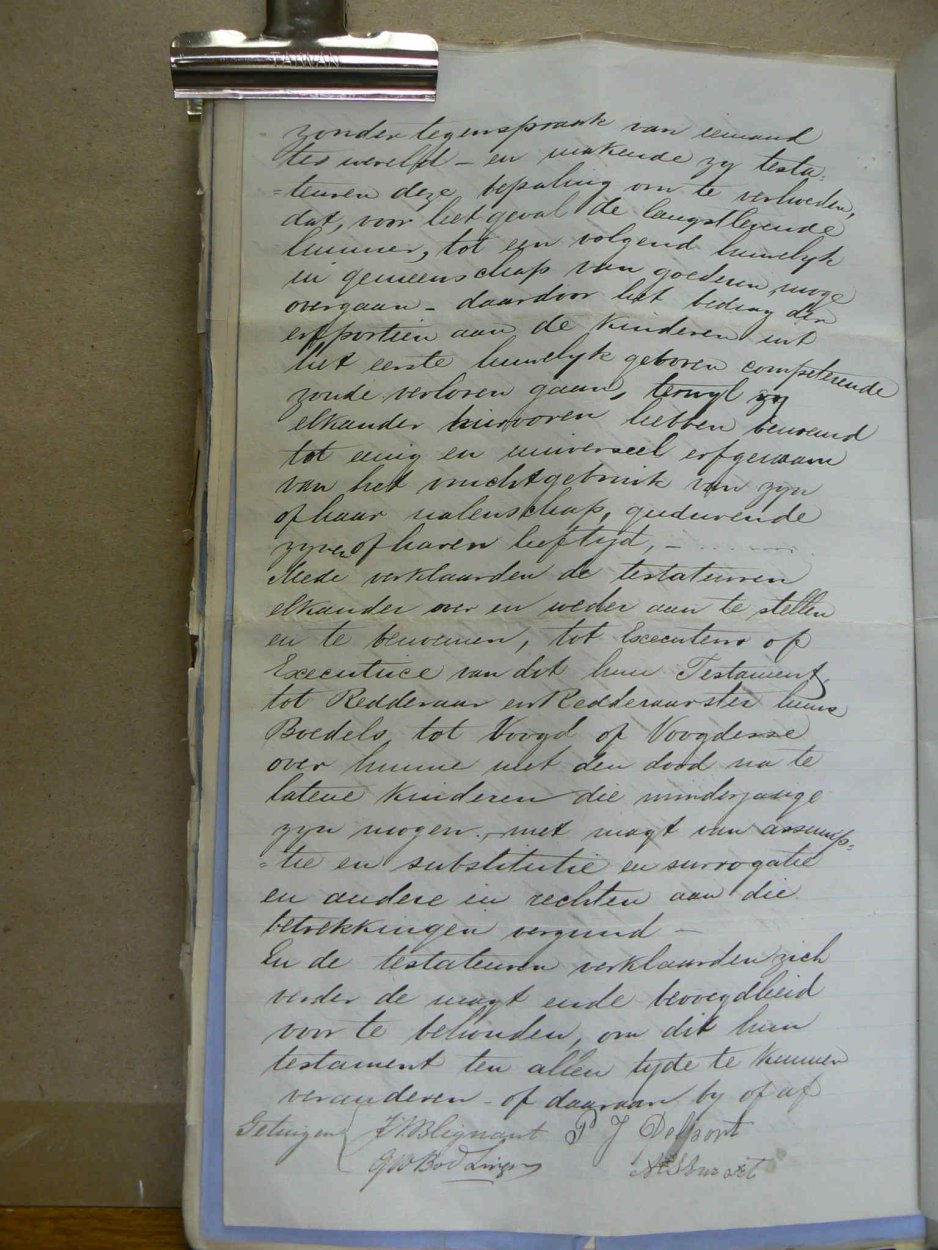 TAIWAN
zonder tegenspraak van iemand
ter wereld – en makende zy testa-
=teuren deze bepaling om te verhoeden,
dat, voor het geval de langstlevende
hunner, tot een volgend huwelyk
in gemeenschap van goederen moge
overgaan – daardoor het bedrag der
erfportien aan de kinderen uit
het eerste huwelyk geboren competerende
zoude verloren gaan, terwyl zy
elkander hiervoren hebben benoemd
tot eenig en universeel erfgenaam
van het vruchtgebruik van zyn
of haar nalenschap, gedurende
zynen of haren leeftijd, –
Mede verklaarden de testateuren
elkander over en weder aan te stellen
en te benoemen, tot Executeur of
Executrice van dit hun Testament,
tot Redderaar en Redderaarster huns
Boedels, tot Voogd of Voogdesse
over hunne met den dood na te
latene Kinderen die minderjarige
zyn mogen, met magt van assump-
=tie en substitutie en surrogatie
en andere in rechten aan die
betrekkingen vergund –
En de testateuren verklaarden zich
verder de magt ende bevoegdheid
voor te behouden, om dit hun
testament ten allen tyde te kunnen
veranderen – of daaraan by of af
Getuigen J P J Delport